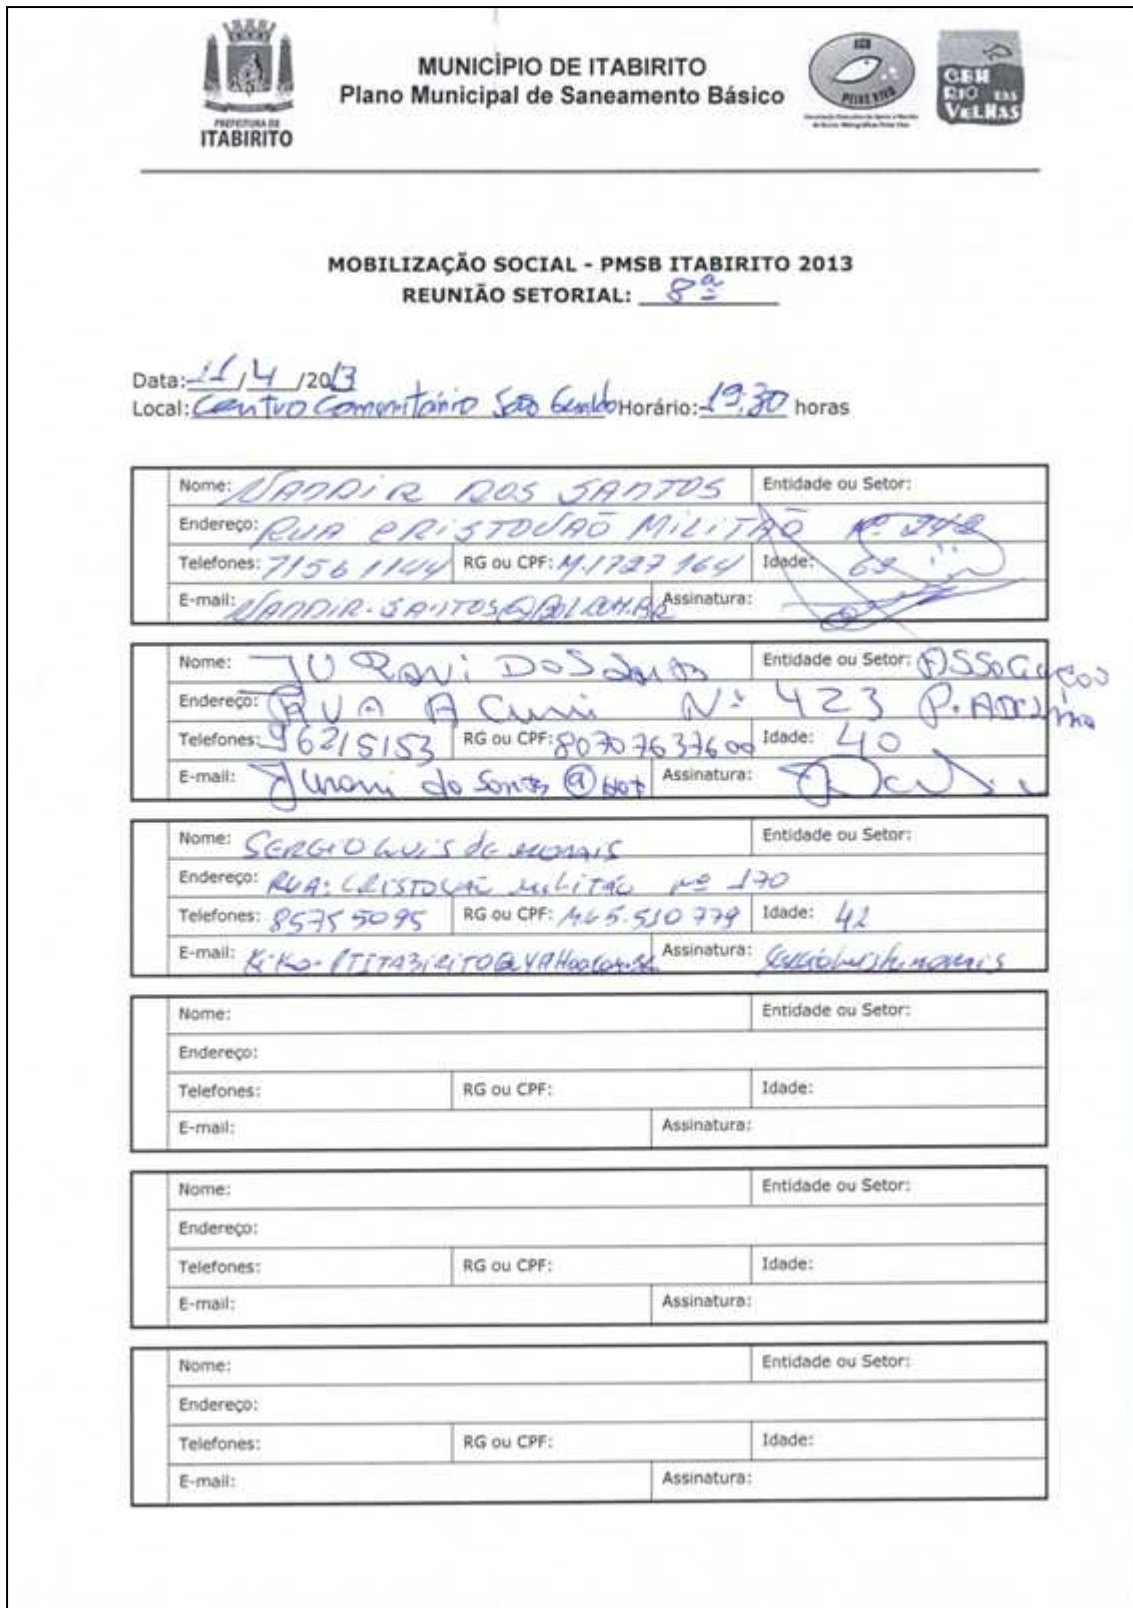 PREFEITURA DE
ITABIRITO
MUNICÍPIO DE ITABIRITO
Plano Municipal de Saneamento Básico
AGB
PEIXE VIVO
CBH
RIO DAS
VELHAS
MOBILIZAÇÃO SOCIAL - PMSB ITABIRITO 2013
REUNIÃO SETORIAL: 8ª
Data: 11/4/2013
Local: Centro Comunitário São Geraldo Horário: 19:30 horas
Nome: VANDIR DOS SANTOS Entidade ou Setor:
Endereço: RUA CRISTOVÃO MILITÃO Nº
Telefones: 71561144 RG ou CPF: M.1727164 Idade:
E-mail: VANDIR.SANTOS@BOL.COM.BR Assinatura:
Nome: JURANI DOS Santos Entidade ou Setor: ASSOCIAÇÃO
Endereço: RUA Nº 423 P. ADELMO
Telefones: 96215153 RG ou CPF: 80707637600 Idade: 40
E-mail: Jurani do Santos @ Hot Assinatura:
Nome: SERGIO LUIS DE MORAIS Entidade ou Setor:
Endereço: RUA: CRISTOVÃO MILITÃO Nº 170
Telefones: 85755095 RG ou CPF: M65.510779 Idade: 42
E-mail: KiKO-PTITABIRITO@YAHOO.COM.BR Assinatura:
Nome: Entidade ou Setor:
Endereço:
Telefones: RG ou CPF: Idade:
E-mail: Assinatura:
Nome: Entidade ou Setor:
Endereço:
Telefones: RG ou CPF: Idade:
E-mail: Assinatura:
Nome: Entidade ou Setor:
Endereço:
Telefones: RG ou CPF: Idade:
E-mail: Assinatura: